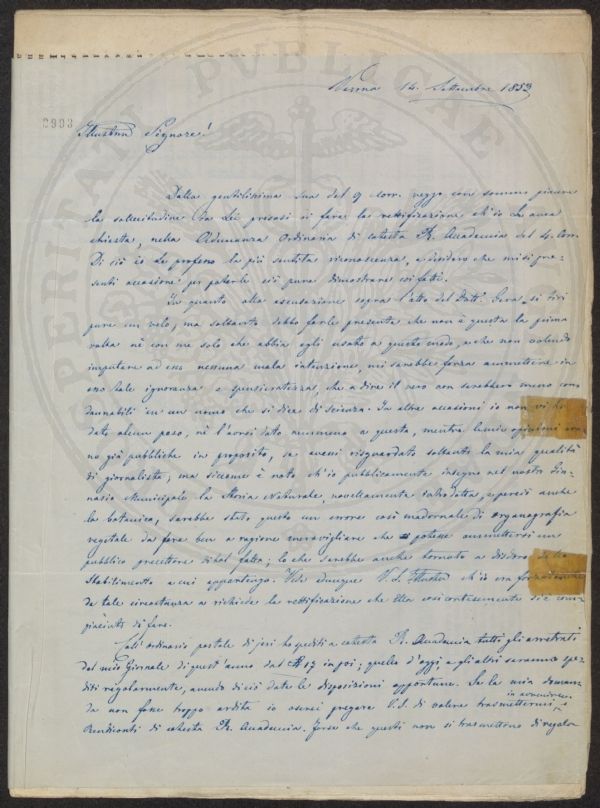 Verona 14. Settembre 1853
2993
Illustre Signore!
Dalla gentilissima sua del 9 corr. veggo con sommo piacere
la sollecitudine da Lei presasi di fare la rettificazione ch'io Le avea
chiesta, nella Adunanza Ordinaria di cotesta R. Accademia del 4. Corr.
Di ciò io Le professo la più sentita riconoscenza, e desidero che mi si pre-
senti occasione per poterle ciò pure dimostrare coi fatti.
In quanto alla escusazione sopra l'atto del Dott. si tiri
pure un velo, ma soltanto debbo farle presente che non è questa la prima
volta nè con me solo che abbia egli usato a questo modo, e che non volendo
imputare ad esso nessuna mala intenzione, mi sarebbe forza ammettere in
esso tale ignoranza e spensieratezza, che a dire il vero non sarebbero meno con-
dannabili in un uomo che si dica di scienza. In altre occasioni io non vi ho
dato alcun peso, nè l'avrei dato nemmeno a questa, mentre le mie opinioni so-
no già pubbliche in proposito, se avessi risguardato soltanto la mia qualità
di giornalista; ma siccome è noto ch'io pubblicamente insegno nel nostro Gin-
nasio Municipale la Storia Naturale, novellamente introdotta, e perciò anche
la botanica, sarebbe stato questo un errore così madornale di organografia
vegetale da fare ben a ragione meravigliare che potesse ammettersi un
pubblico precettore di tal fatta; lo che sarebbe anche tornato a disdoro dello
Stabilimento a cui appartengo. Vede dunque V.S. Illustre ch'io era
da tale circostanza a richiedere la rettificazione che Ella così cortesemente si è com-
piaciuta di fare.
Coll' ordinario postale di jeri ho spediti a cotesta R. Accademia tutti gli arretrati
del mio Giornale di quest'anno dal N 17 in poi; quello d'oggi, e gli altri saranno spe-
diti regolarmente, avendo di ciò date le disposizioni opportune. Se la mia doman-
da non fosse troppo ardita io oserei pregare V.S. di volere trasmettermi in avvenire i
Rendiconti di cotesta R. Accademia. Forse che questi non si trasmettono di regola